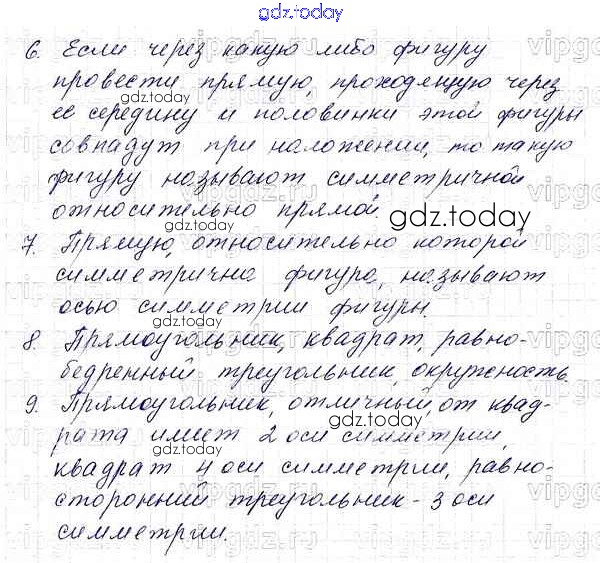 gdz.today
6. Если через какую либо фигуру
провести прямую, проходящую через
её середину и половинки этой фигуры
совпадут при наложении, то такую
фигуру называют симметричной
относительно прямой.
7. Прямую, относительно которой
симметрична фигура, называют
осью симметрии фигуры.
8. Прямоугольник, квадрат, равно-
бедренный треугольник, окружность.
9. Прямоугольник, отличный от квад-
рата имеет 2 оси симметрии,
квадрат 4 оси симметрии, равно-
сторонний треугольник - 3 оси
симметрии.